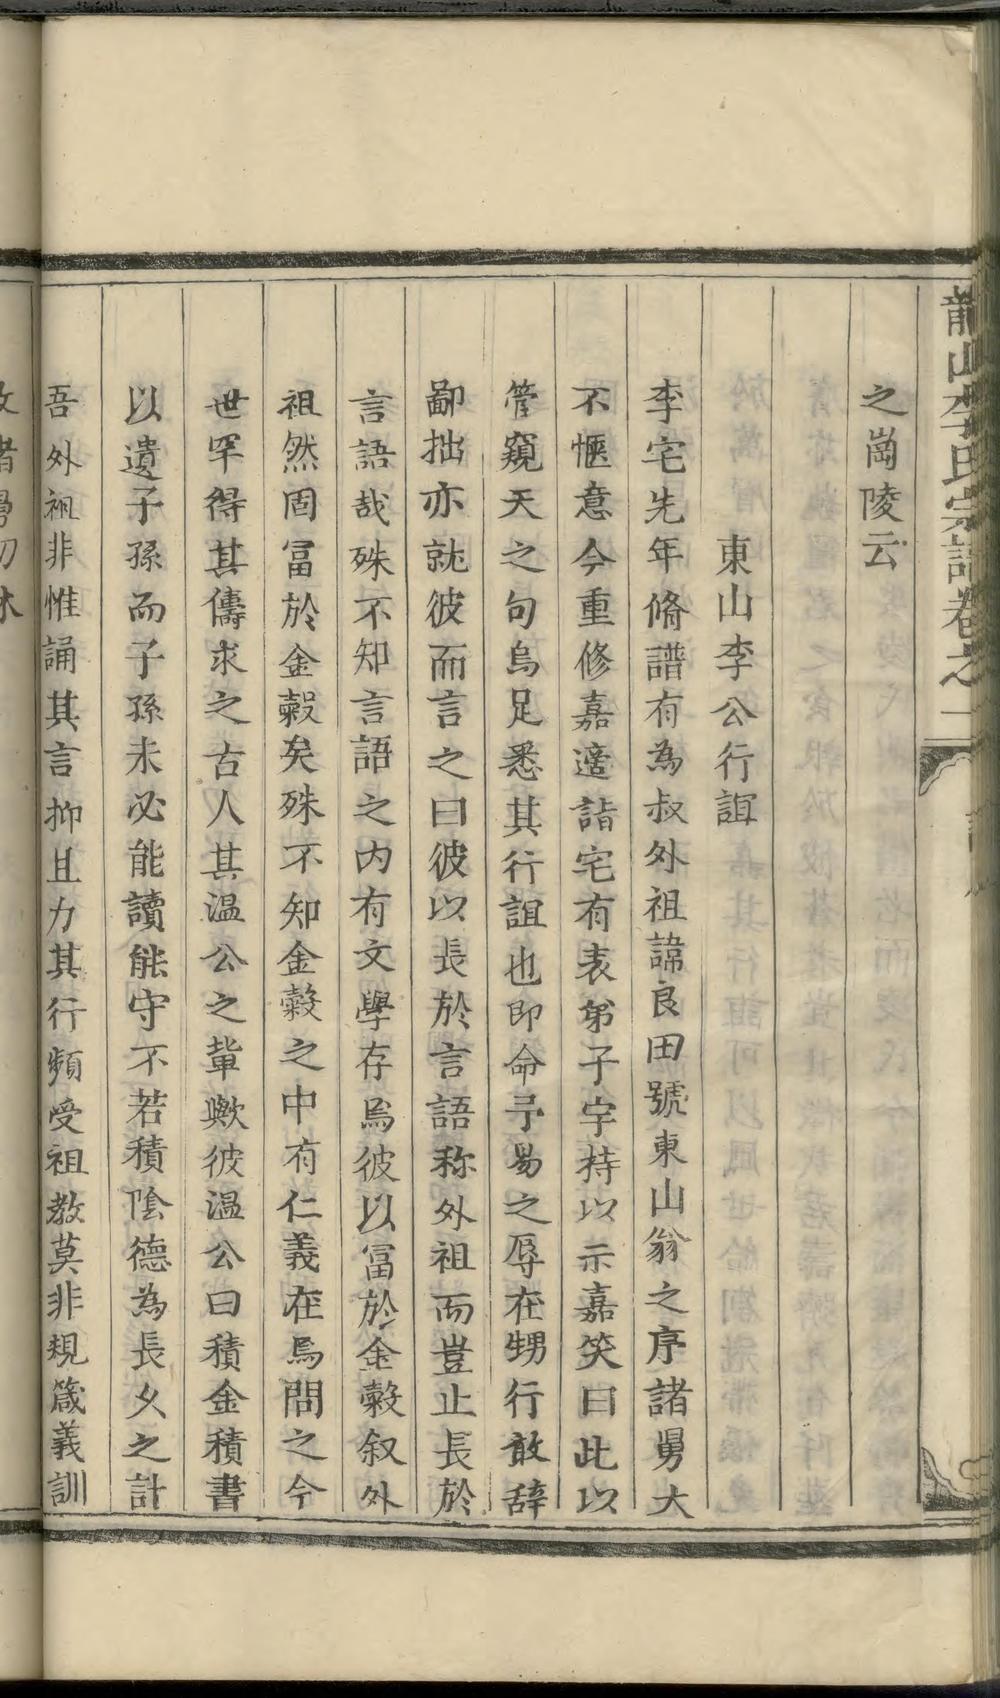 龍山李氏宗譜卷之一
之崗陵云
東山李公行誼
李宅先年脩譜有為叔外祖諱良田號東山翁之序諸舅大
不愜意今重修嘉適詣宅有表弟子字持以示嘉笑曰此以
管窺天之句烏足悉其行誼也即命予易之辱在甥行敢辞
鄙拙亦就彼而言之曰彼以長於言語称外祖而豈止長於
言語哉殊不知言語之内有文學存焉彼以冨於金穀叙外
祖然固冨於金穀矣殊不知金穀之中有仁義在焉問之今
世罕得其儔求之古人其温公之軰歟彼温公曰積金積書
以遺子孫而子孫未必能讀能守不若積陰德為長久之計
吾外祖非惟誦其言抑且力其行頻受祖教莫非規箴義訓